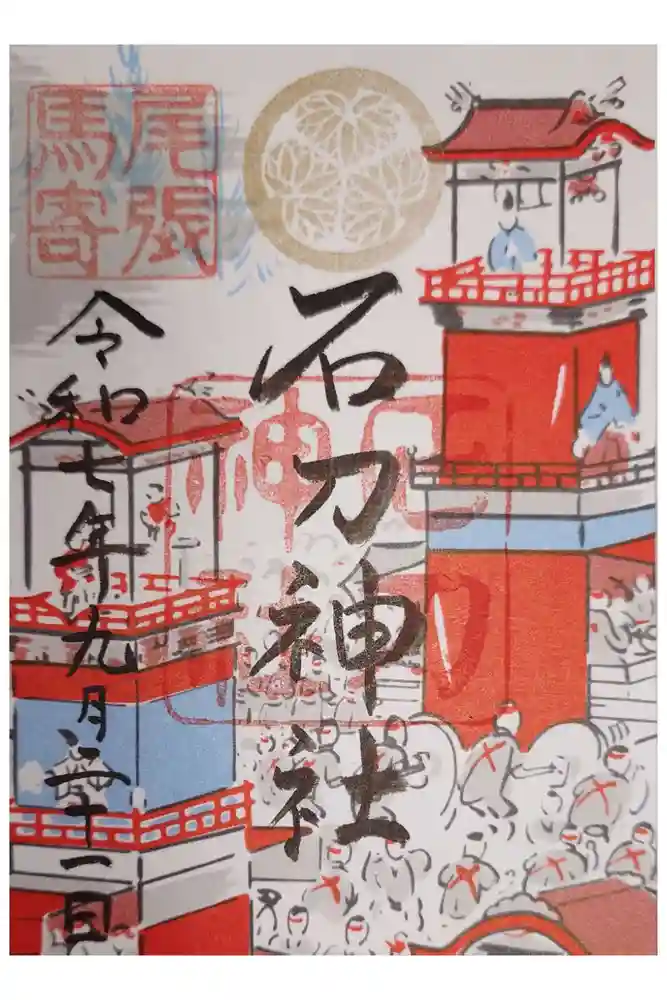 尾張
馬寄
石刀神社
令和七年九月二十一日